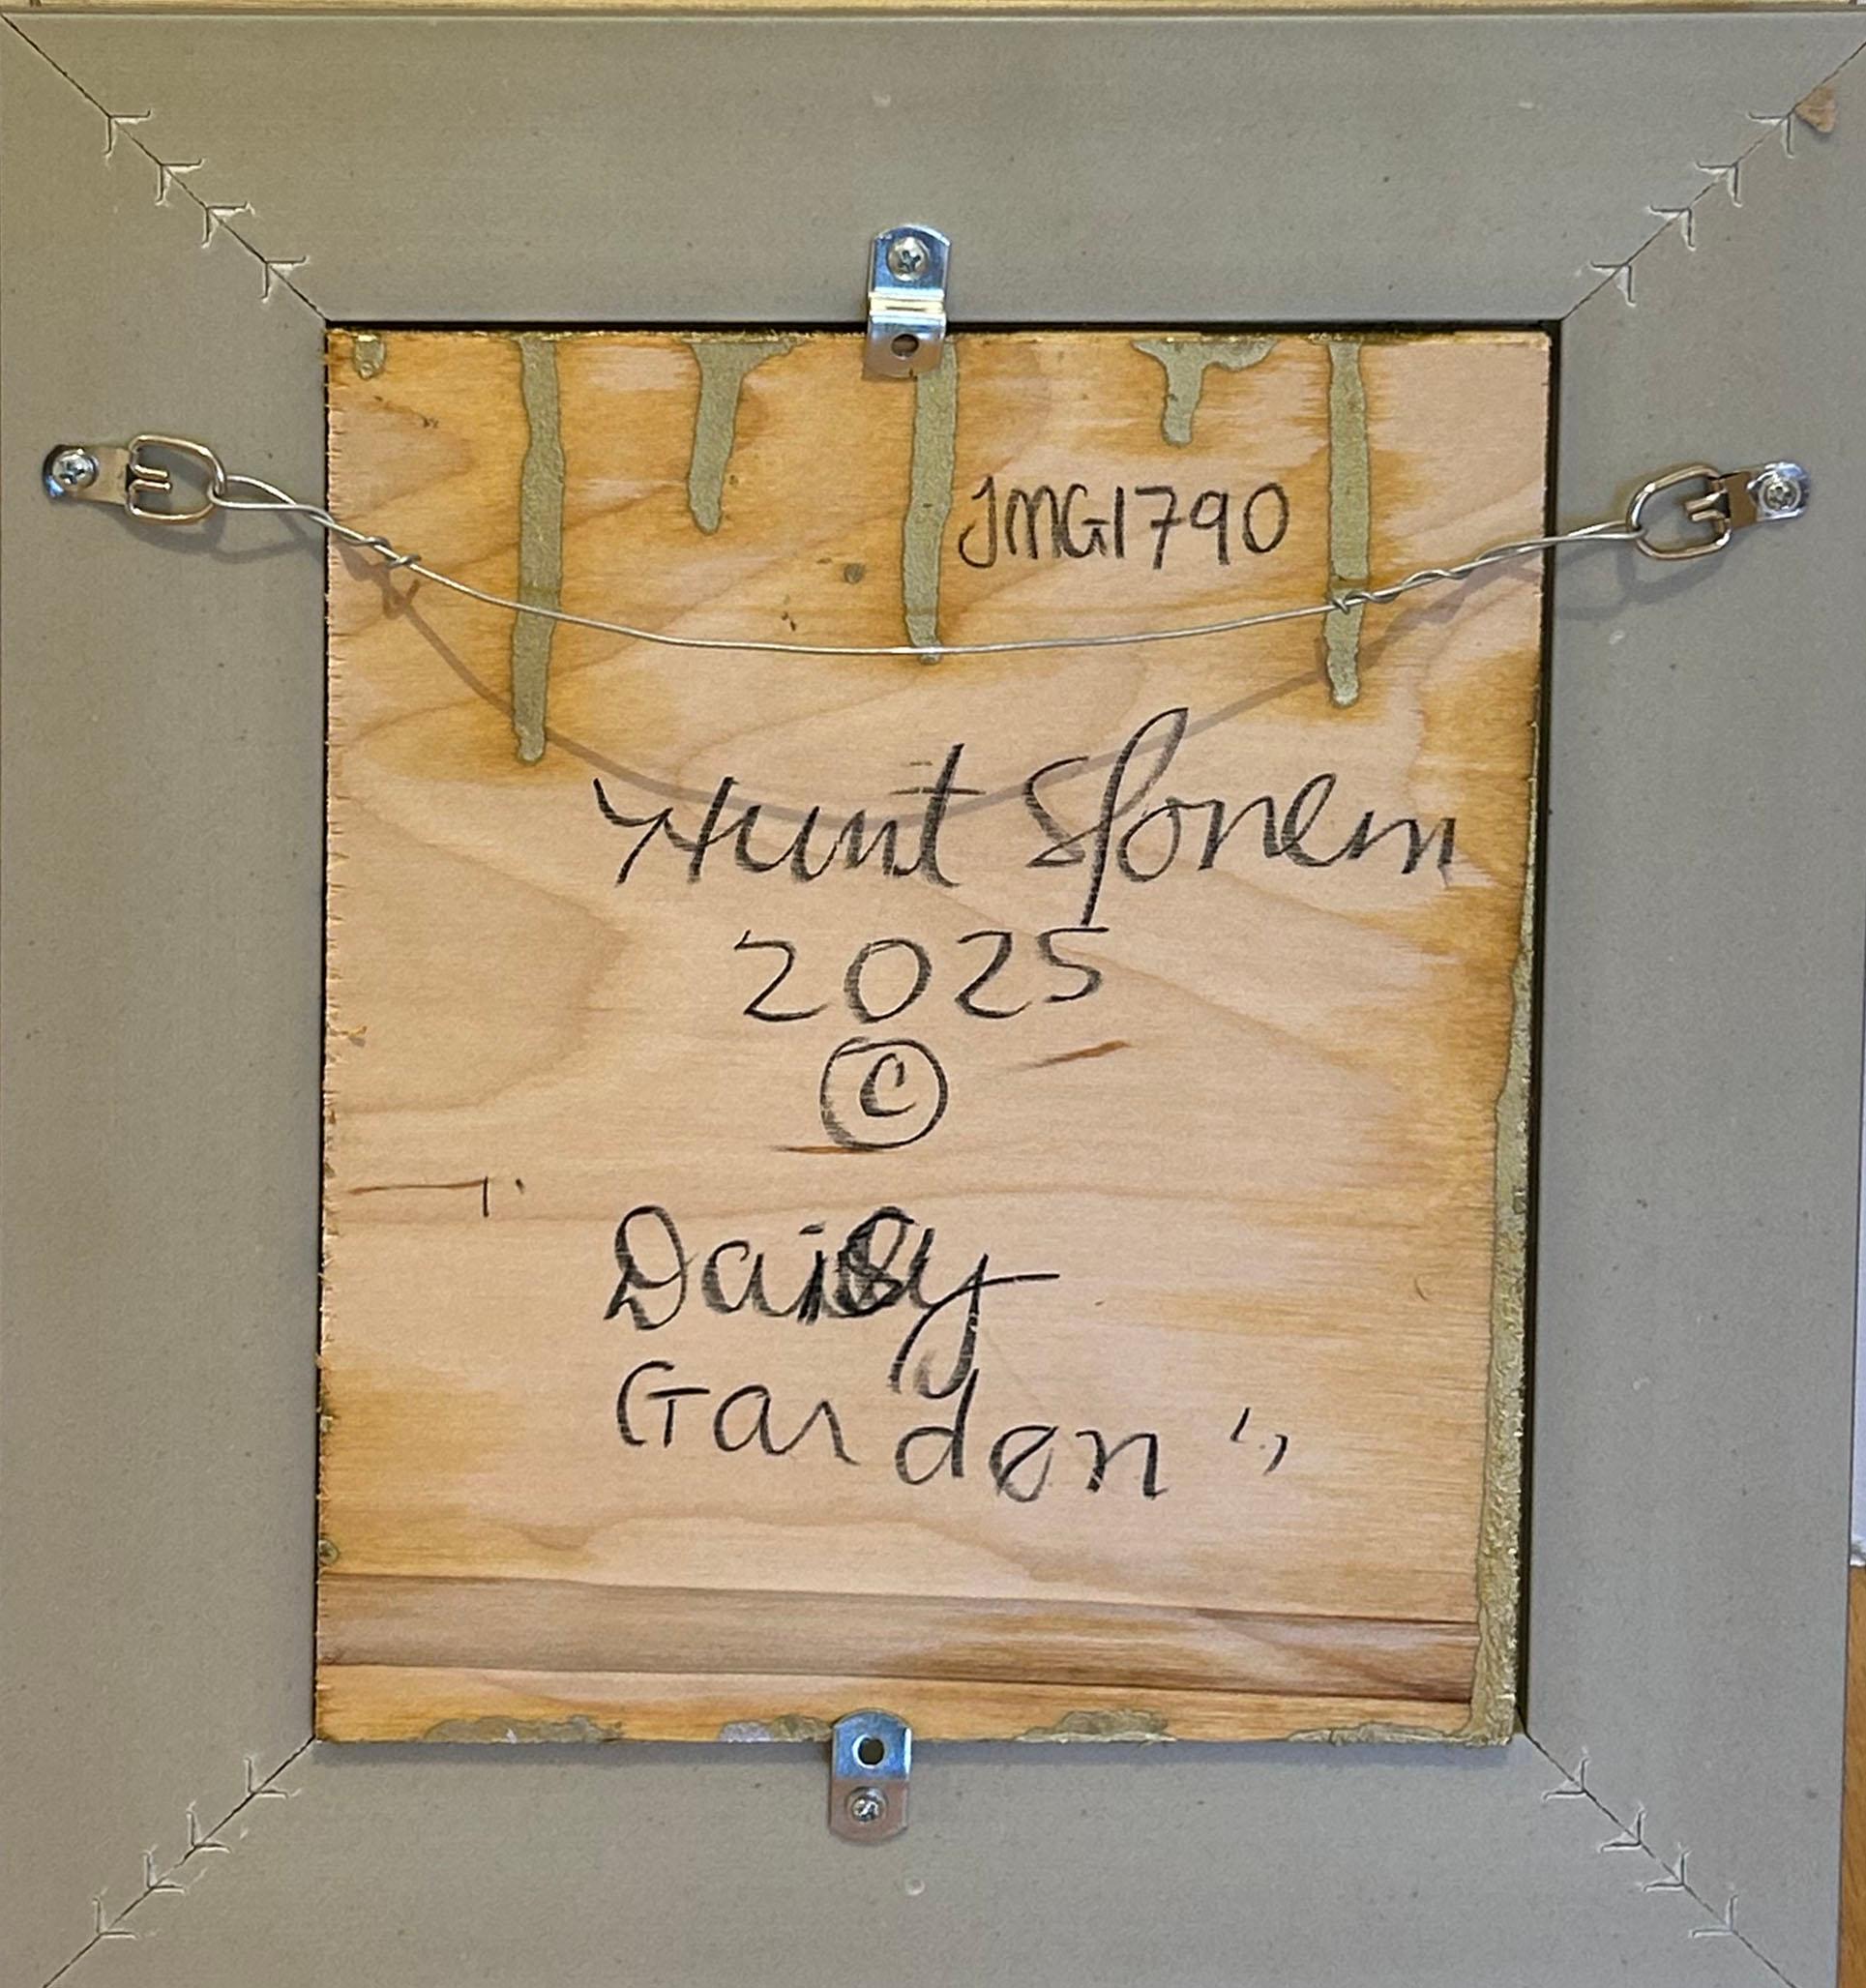 JMG1790
Hunt Slonem
2025
©
"Daisy
Garden"